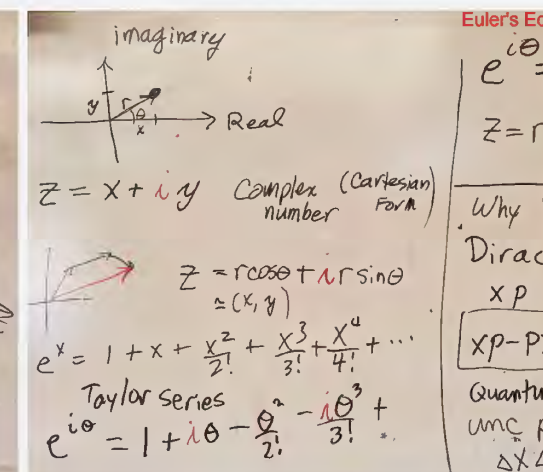 imaginary
y r θ
x
Real
Z = x + i y Complex (Cartesian)
number Form
Z = r cosθ + i r sinθ
≃ (x, y)
e^x = 1 + x + x²/2! + x³/3! + x⁴/4! + ...
Taylor series
e^{iθ} = 1 + iθ - θ²/2! - iθ³/3! + ...
Euler's E
e^{iθ} =
Z = r
Why
Dirac
x p
xp-p
Quantu
unc p
Δx Δ